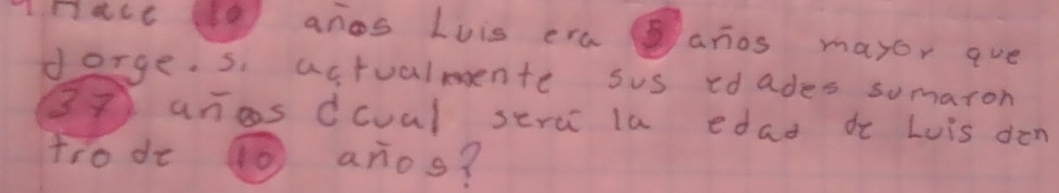 Hace 10 años Luis era 5 años mayor que
Jorge. Si actualmente sus edades sumaron
37 años ¿cual será la edad de Luis den
tro de 10 años?